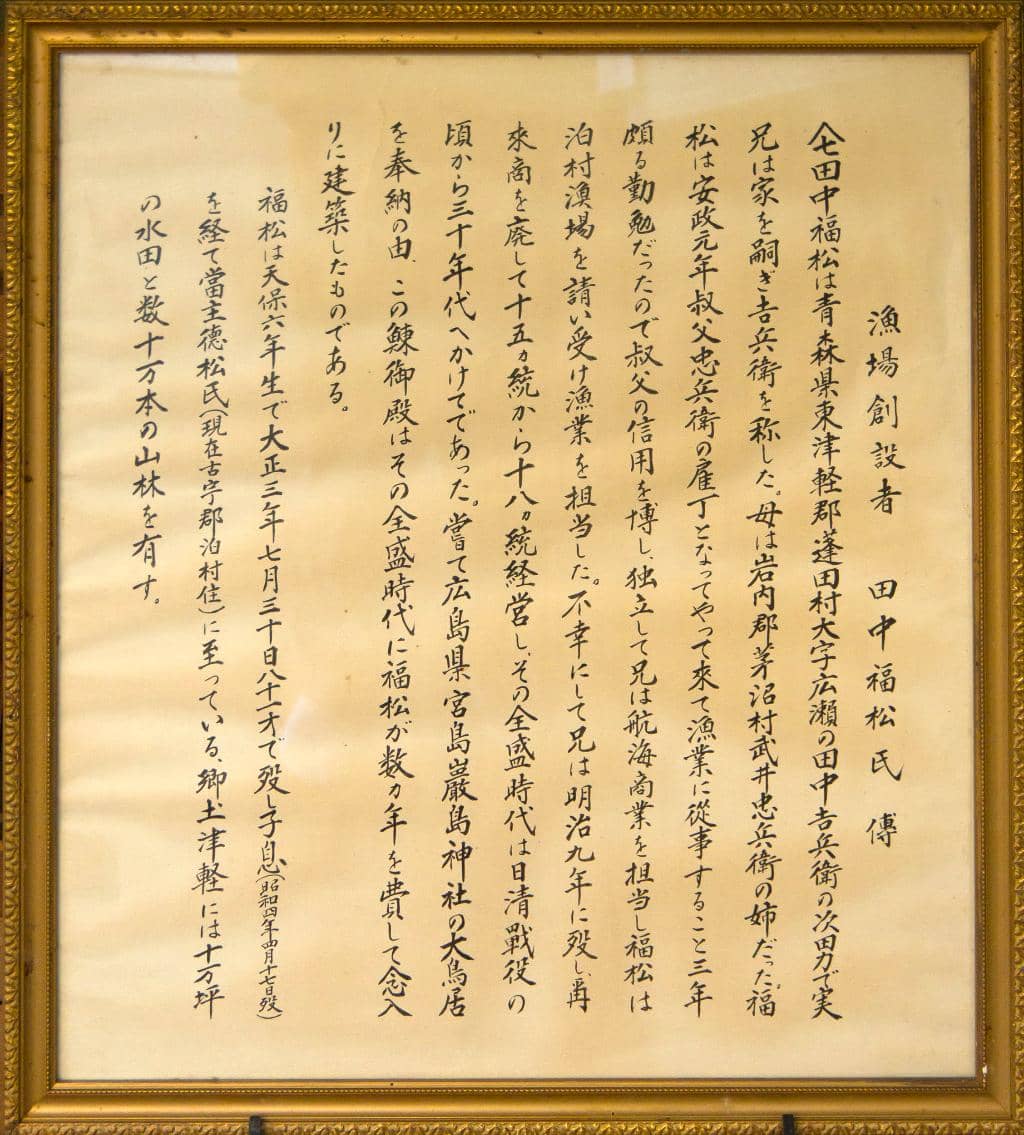 漁場創設者 田中福松氏傳
田中福松は青森県東津軽郡蓬田村大字広瀬の田中吉兵衛の次男で実
兄は家を嗣ぎ吉兵衛を称した。母は岩内郡茅沼村武井忠兵衛の姉だった。福
松は安政元年叔父忠兵衛の雇丁となってやって來て漁業に從事すること三年
頗る勤勉だったので叔父の信用を博し、独立して兄は航海商業を担当し福松は
泊村漁場を請い受け漁業を担当した。不幸にして兄は明治九年に歿し、爾
來商を廃して十五ヵ統から十八ヵ統経営し、その全盛時代は日清戰役の
頃から三十年代へかけてであった。嘗て広島県宮島巖島神社の大鳥居
を奉納の由、この鰊御殿はその全盛時代に福松が数ヵ年を費して念入
りに建築したものである。
福松は天保六年生で大正三年七月三十日八十一才で歿し子息(昭和四年四月十七日歿)
を経て當主德松氏(現在古宇郡泊村住)に至っている、郷土津軽には十万坪
の水田と数十万本の山林を有す。